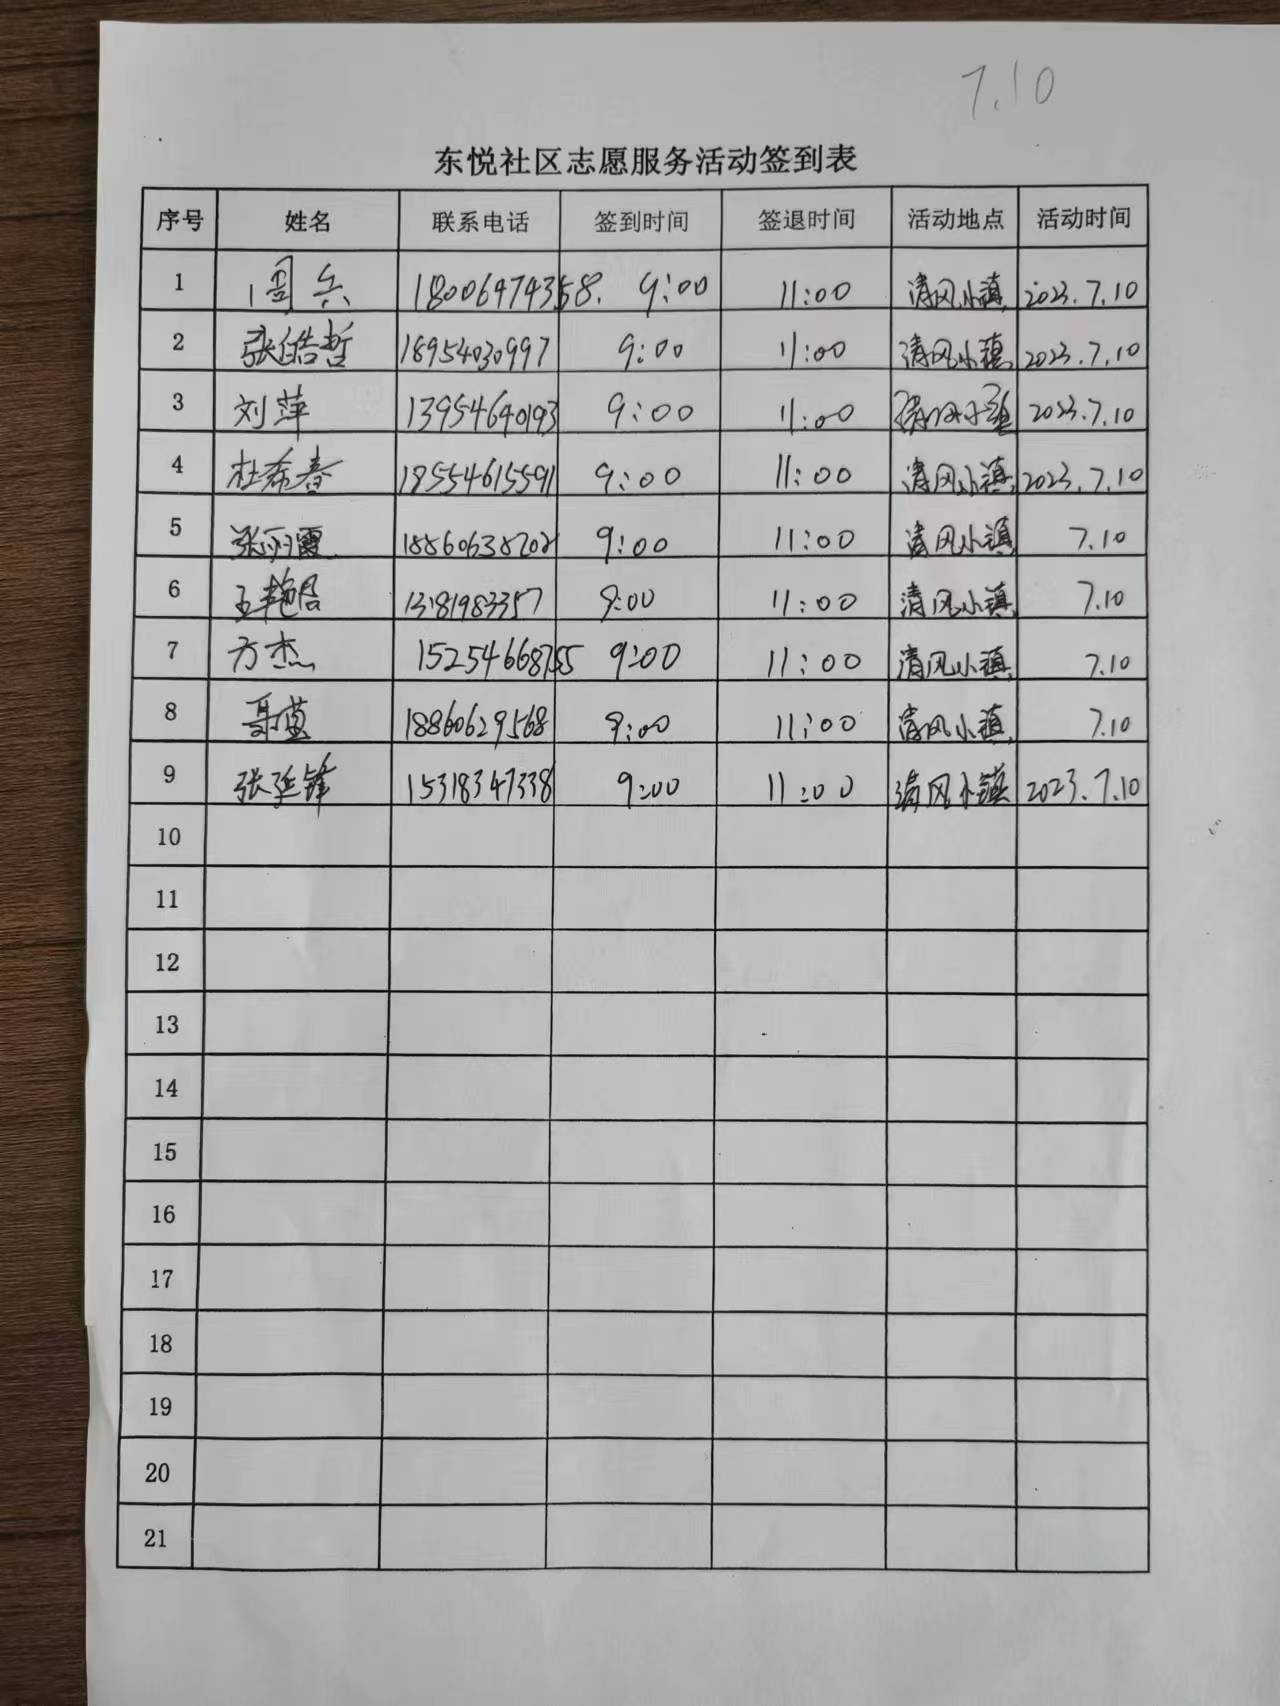 7.10
东悦社区志愿服务活动签到表
序号 姓名 联系电话 签到时间 签退时间 活动地点 活动时间
1 周兵 18006474358. 9:00 11:00 清风小镇 2023.7.10
2 张皓哲 18954030997 9:00 11:00 清风小镇 2023.7.10
3 刘萍 13954640193 9:00 11:00 清风小镇 2023.7.10
4 杜希春 18554615591 9:00 11:00 清风小镇 2023.7.10
5 张丽霞 18860638202 9:00 11:00 清风小镇 7.10
6 13181983357 9:00 11:00 清风小镇 7.10
7 方杰 15254668755 9:00 11:00 清风小镇 7.10
8 18860629568 9:00 11:00 清风小镇 7.10
9 张延锋 15318347338 9:00 11:00 清风小镇 2023.7.10
10
11
12
13
14
15
16
17
18
19
20
21